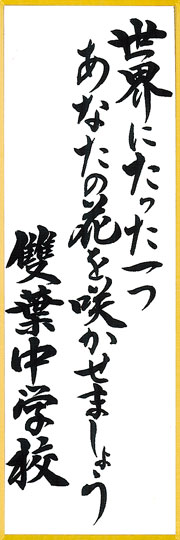 世界にたった一つ
あなたの花を咲かせましょう
雙葉中学校